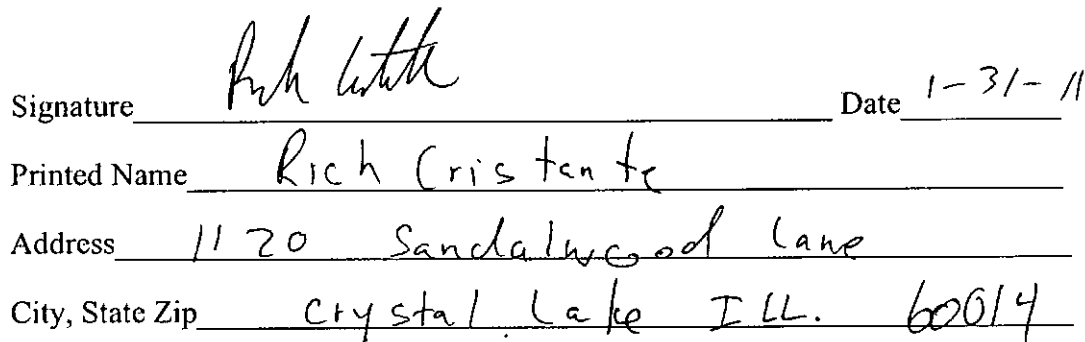 Signature Date 1-31-11
Printed Name Rich Cristante
Address 1120 Sandalwood Lane
City, State Zip Crystal Lake ILL. 60014